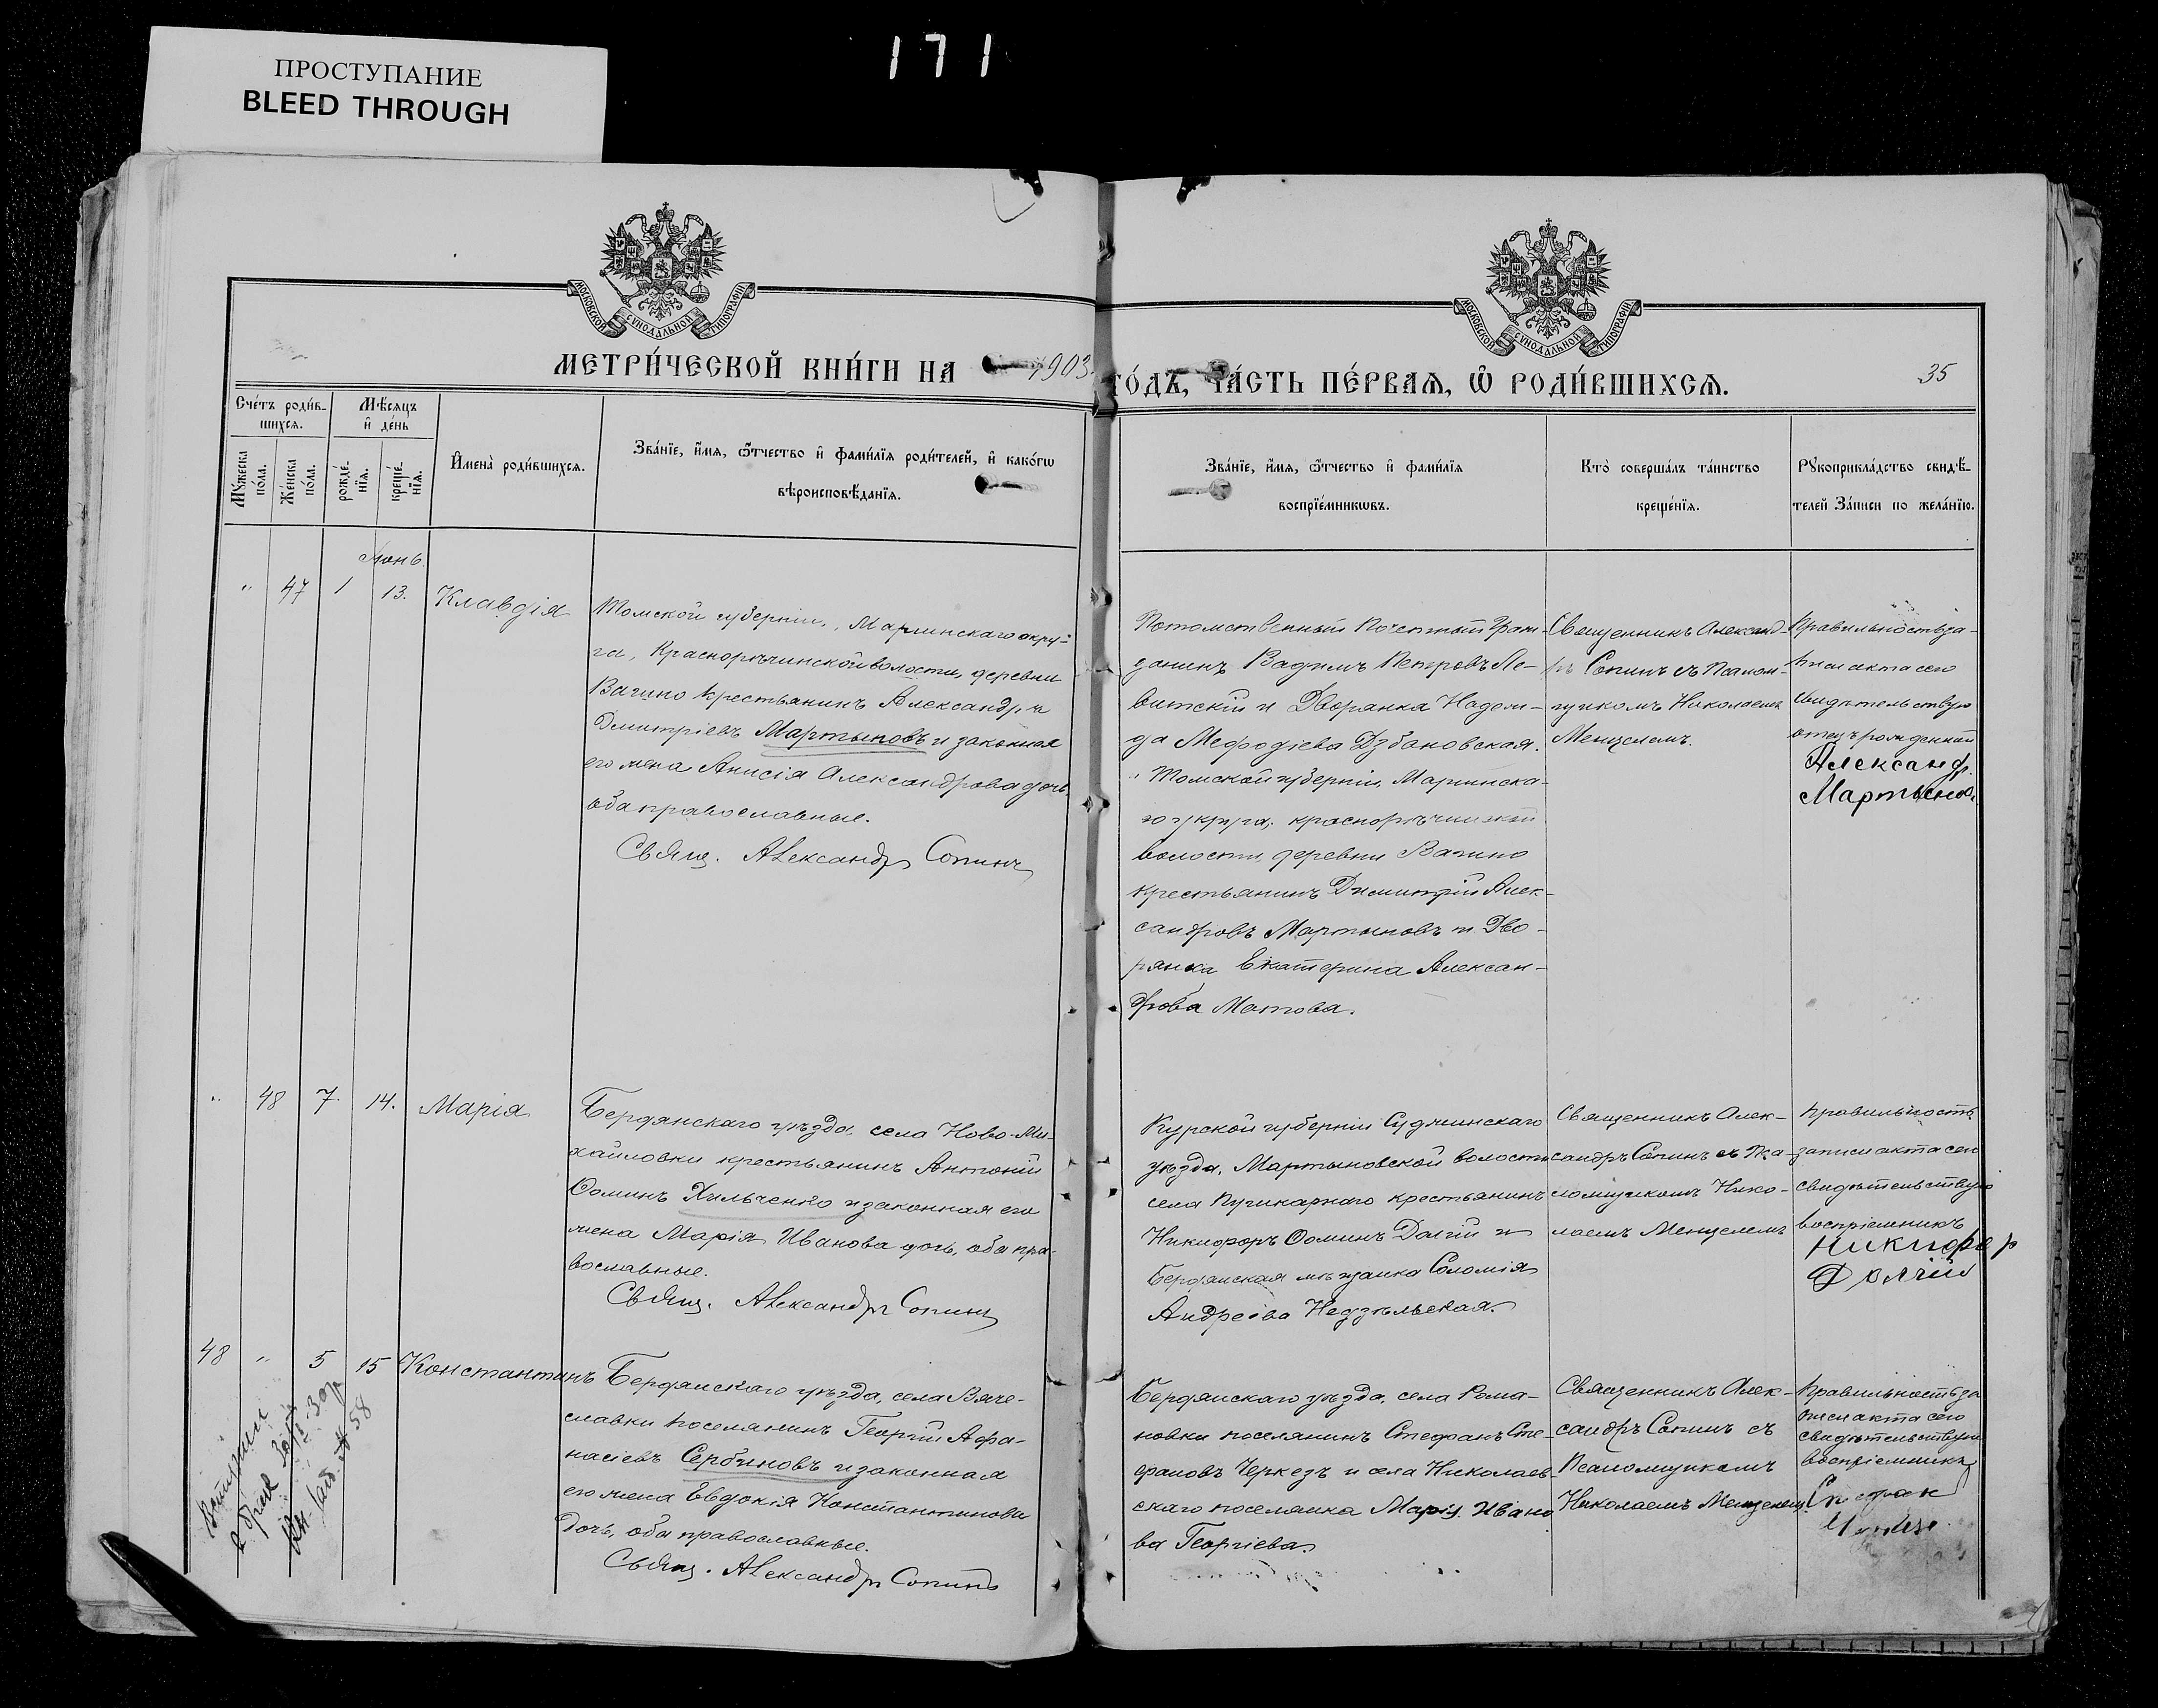 ПРОСТУПАНИЕ
BLEED THROUGH
171
МОСКОВСКОЙ СѴНОДАЛЬНОЙ ТИПОГРАФІИ
МОСКОВСКОЙ СѴНОДАЛЬНОЙ ТИПОГРАФІИ
МЕТРИ́ЧЕСКОЙ КНИ́ГИ НА 1903
ГО́ДЪ, ЧА́СТЬ ПЕ́РВАѦ, Ѽ РОДИ́ВШИХСѦ.
35
Сче́тъ роди́в-
шихсѧ.
Мѣ́сѧцъ
и҆ де́нь
Мꙋ́жеска
по́ла.
Же́нска
по́ла.
рожде́-
нїѧ.
креще́-
нїѧ.
И҆мена̀ роди́вшихсѧ.
Зва́нїе, и҆́мѧ, ѻ҆́тчество и҆ фами́лїѧ роди́телей, и҆ како́гѡ
вѣроисповѣ́данїѧ.
Зва́нїе, и҆́мѧ, ѻ҆́тчество и҆ фами́лїѧ
воспрїе́мникѡвъ.
Кто̀ соверша́лъ та́инство
креще́нїѧ.
Рꙋкоприкла́дство свидѣ́-
телей За́писи по жела́нїю.
Іюнь
" 47 1 13. Клавдія
Томской губерніи, Маріинскаго окру-
га, Краснорѣчинской волости, деревни
Вагино крестьянинъ Александръ
Дмитріевъ Мартыновъ и законная
его жена Анисія Александрова дочь,
оба православные.
Свящ. Александръ Сопинъ
Потомственный Почетный Граж-
данинъ Вадимъ Петровъ Ле-
витскій и Дворянка Надеж-
да Мефодіева Дзбановская.
" Томской губерніи, Маріинска-
го округа, краснорѣчинской
волости, деревни Вагино
крестьянинъ Димитрій Алек-
сандровъ Мартыновъ и Дво-
рянка Екатерина Алексан-
дрова Матова.
Священникъ Александ-
ръ Сопинъ съ Псалом-
щикомъ Николаемъ
Менцелемъ.
Правильность за-
писи акта сего
свидѣтельствую
отецъ рожденной
Александръ
Мартынов.
" 48 7. 14. Марія
Бердянскаго уѣзда, села Ново-Ми-
хайловки крестьянинъ Антоній
Ѳоминъ Хильченко и законная его
жена Марія Иванова дочь, оба пра-
вославные.
Свящ. Александръ Сопинъ
Курской губерніи Суджинскаго
уѣзда, Мартыновской волости
села Пушкарнаго крестьянинъ
Никифоръ Ѳоминъ Долгій и
Бердянская мѣщанка Соломія
Андреева Недзѣльская.
Священникъ Алек-
сандръ Сопинъ съ Пса-
ломщикомъ Нико-
лаемъ Менцелемъ
Правильность
записи акта сего
свидѣтельствую
воспріемникъ
Никифор
Долгій
48 " 5 15 Константинъ
Бердянскаго уѣзда, села Вяче-
славки поселянинъ Георгій Афа-
насіевъ Сербиновъ и законная
его жена Евдокія Константинова
дочь, оба православные.
Свящ. Александръ Сопинъ
Бердянскаго уѣзда, села Рома-
новки поселянинъ Стефанъ Сте-
фановъ Черкезъ и села Николаев-
скаго поселянка Марія Ивано
ва Георгіева.
Священникъ Алек-
сандръ Сопинъ съ
Псаломщикомъ
Николаемъ Менцелемъ.
Правильность за
писи акта сего
свидѣтельствую
воспріемникъ
Стефан
58